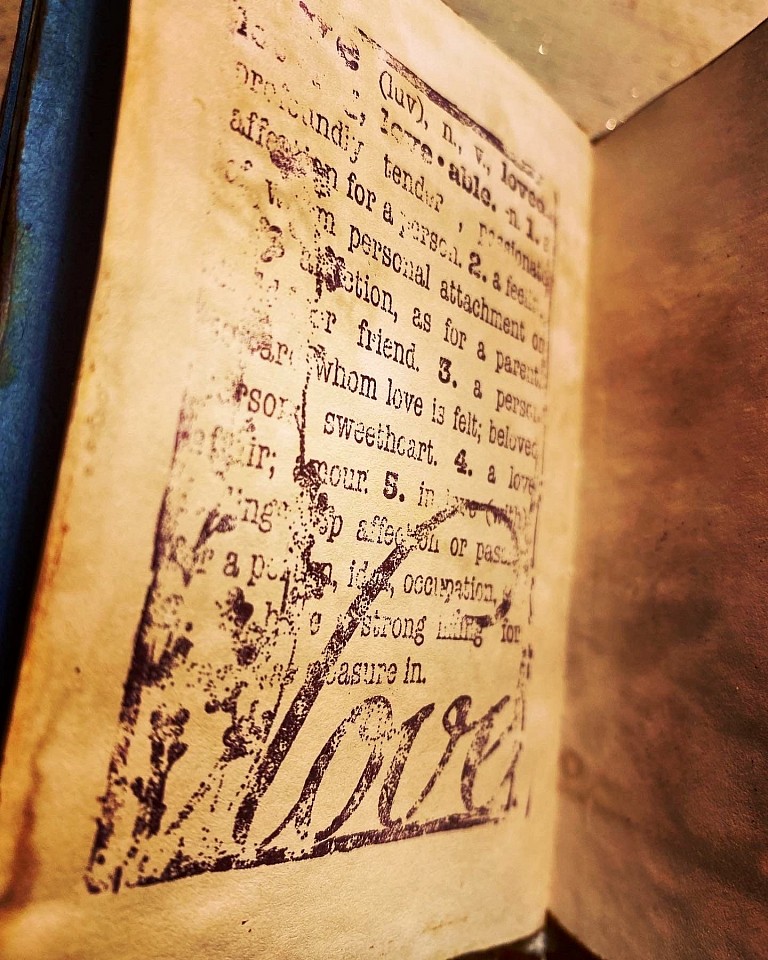 love (luv), n., v., loved
love•able. n. 1. a
profoundly tender, passionate
affection for a person. 2. a
of warm personal attachment or
affection, as for a parent
or friend. 3. a person
whom love is felt; beloved
person sweetheart. 4. a love
affair; amour. 5. in love (with)
deep affection or
for a person, idea, occupation,
strong liking for
pleasure in.
love